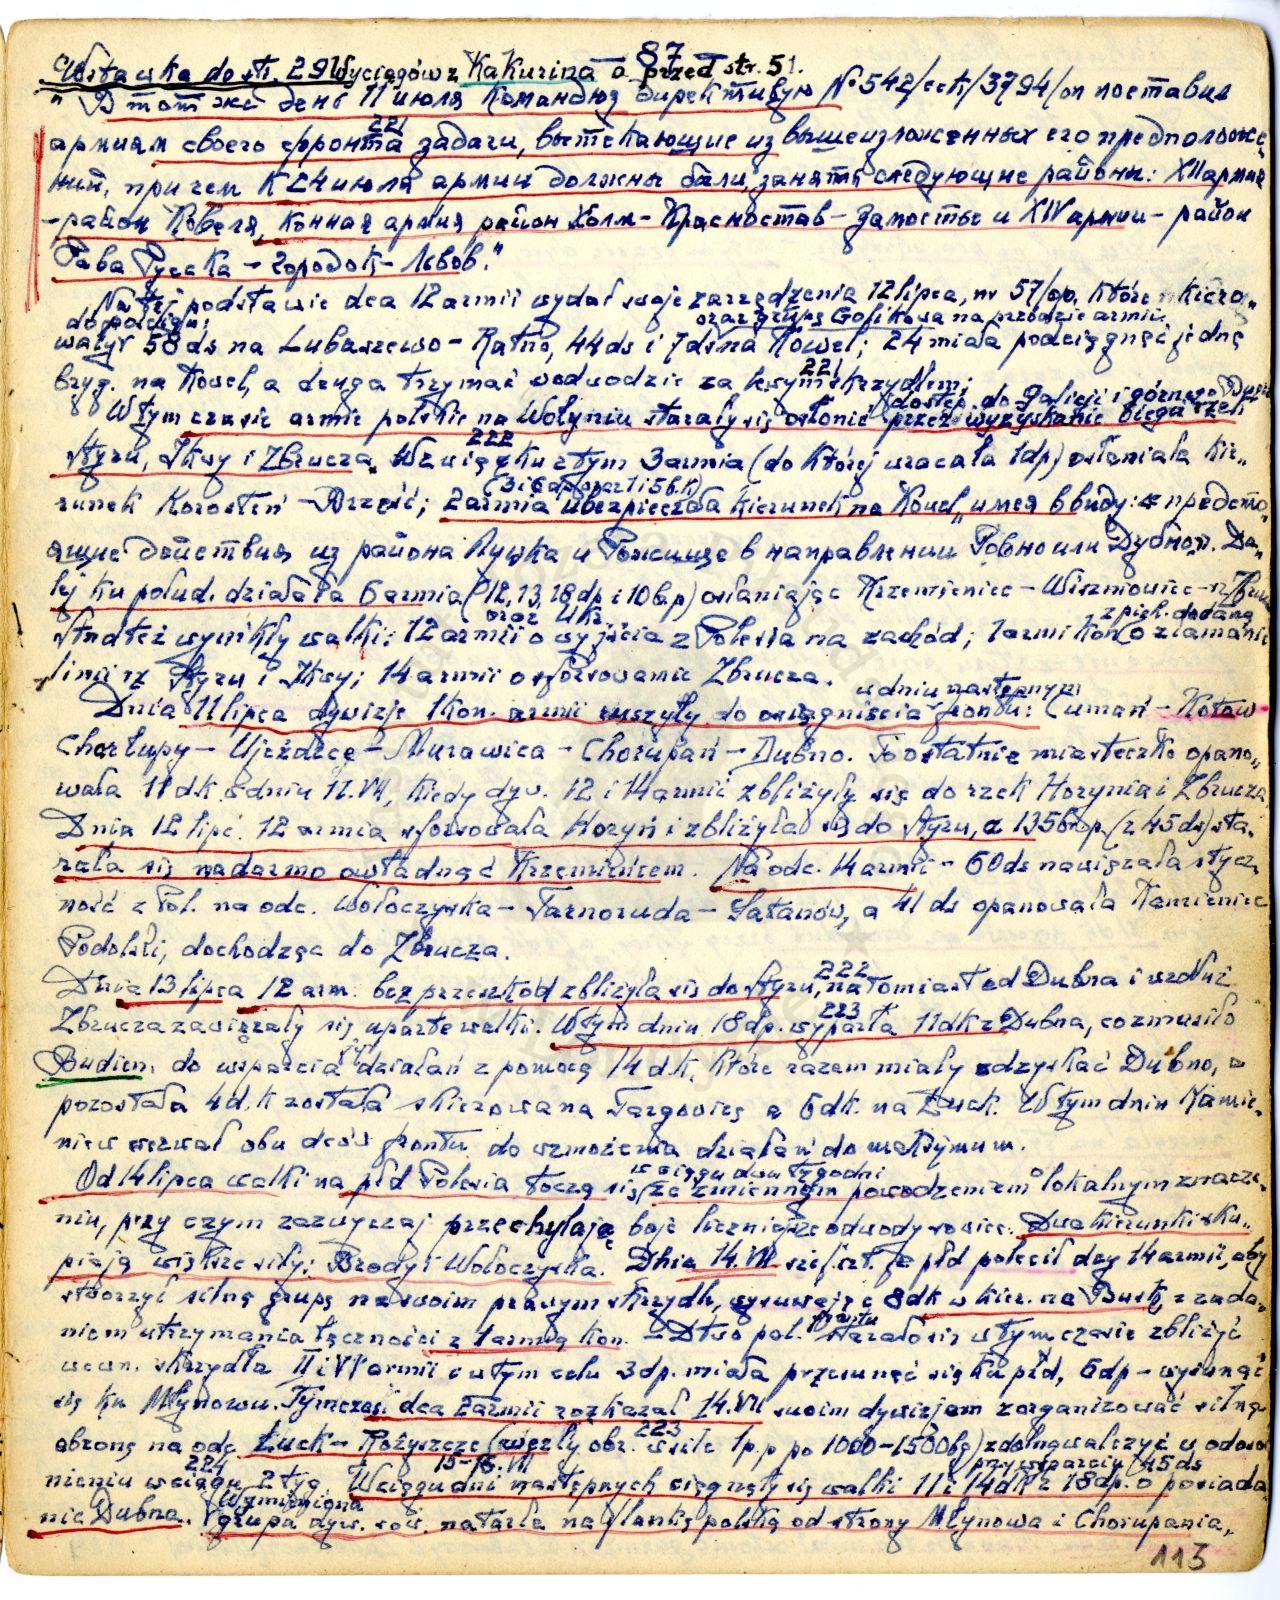 87
Wstawka do str. 29 Wyciągów z Kakurina – a przed str. 51.
"В тот же день 11 июля командюз директивую № 542/сек/3794/оп поставил
армиям своего фронта задачи, вытекающие из вышеизложенных его предположе-
221
ний, причем к 24 июля армии должны были занять следующие районы: XII армия
– район Ковеля, конная армия район Холм – Красностав – Замостье и XIV армии – район
Рава Русска – Городок – Львов."
Na tej podstawie dca 12 armii wydał swoje zarządzenia 12 lipca, nr 57/op, które skiero-
do pościgu:
oraz grupę Golikowa na przodzie armii
wały 58 ds na Lubaszewo – Ratno, 44 ds i 7 ds na Kowel; 24 miała podciągnąć jedną
bryg. na Kowel, a drugą trzymać w odwodzie za lewym skrzydłem;
221
dostęp do Galicji i górnego Bugu
W tym czasie armie polskie na Wołyniu starały się osłonić przez wyzyskanie biegu rzek
222
Styru, Ikwy i Zbrucza. W związku z tym 3 armia (do której wracała 1 dp) osłaniała kie-
(3 i 6 dp oraz 1 i 5 b.k)
runek Korosteń – Brześć; 2 armia ubezpieczała kierunek na Kowel, "имея в виду: предсто-
ящие действия из района Луцка и Рожище в направлении Ровно или Дубно". Da-
lej ku połud. działała 6 armia (12, 13, 18 dp i 10 bp) osłaniając Krzemieniec – Wiszniowiec – rz. Zbrucz
oraz Ukr.
z piech. dodaną
Stąd też wynikły walki: 12 armii o wyjście z Polesia na zachód; 1 armii kon. o złamanie
linii rz Styru i Ikwy; 14 armii o sforsowanie Zbrucza.
w dniu następnym
Dnia 11 lipca dywizje 1 kon. armii ruszyły do osiągnięcia frontu: Cumań – Kotów
Chorłupy – Ujeźdźce – Murawica – Chorupań – Dubno. To ostatnie miasteczko opano-
wała 11 dk. w dniu 11.VII, kiedy dyw. 12 i 14 armii zbliżyły się do rzek Horynia i Zbrucza
Dnia 12 lipc. 12 armia sforsowała Horyń i zbliżyła się do Styru, a 135 brp. (z 45 ds) sta-
rała się nadarmo owładnąć Krzemieńcem. Na odc. 14 armii – 60 ds nawiązała stycz-
ność z Pol. na odc. Wołoczyska – Tarnoruda – Satanów, a 41 ds opanowała Kamieniec
Podolski, dochodząc do Zbrucza.
222
Dnia 13 lipca 12 arm. bez przeszkód zbliżyła się do Styru, natomiast od Dubna i wzdłuż
223
Zbrucza zawiązały się uparte walki. W tym dniu 18 dp. wyparła 11 dk z Dubna, co zmusiło
Budien. do wsparcia jej działań z pomocą 14 dk, które razem miały odzyskać Dubno, a
pozostała 4 d.k została skierowana Targowicę a 6 dk. na Łuck. W tym dniu Kamie-
niew wezwał obu dców frontu do wzmożenia działań do maksymum.
w ciągu dwu tygodni
Od 14 lipca walki na płd Polesia toczą się ze zmiennym powodzeniem o lokalnym znacze-
niu, przy czym zazwyczaj przechylają boje liczniejsze odwody sowiec. Dwa kierunki sku-
piają większe siły: Brody i Wołoczyska. Dnia 14.VII szef szt. fr płd polecił dcy 14 armii, aby
stworzył silną grupę na swoim prawym skrzydle, wysuwając 8 dk w kier. na Busk, z zada-
niem utrzymania łączności z 1 armią kon. – Dtwo pol. starało się w tym czasie zbliżyć
wewn. skrzydła II i VI armii w tym celu 3 dp. miała przesunąć się ku płd, 6 dp – wysunąć
się ku Młynowu. Tymczas. dca 2 armii rozkazał 14.VII swoim dywizjom zorganizować silną
223
obronę na odc. Łuck – Rożyszcze (węzły obr. w sile 1 p.p po 1000–1500 bg) zdolną walczyć w odosob-
224
15–16.VII
przy wsparciu 45 ds
nieniu w ciągu 2 tyg. W ciągu dni następnych ciągnęły się walki 11 i 14 dk z 18 dp. o posiada-
Wzmieniona
nie Dubna. grupa dyw. sow. natarła na flankę polską od strony Młynowa i Chorupania,
113